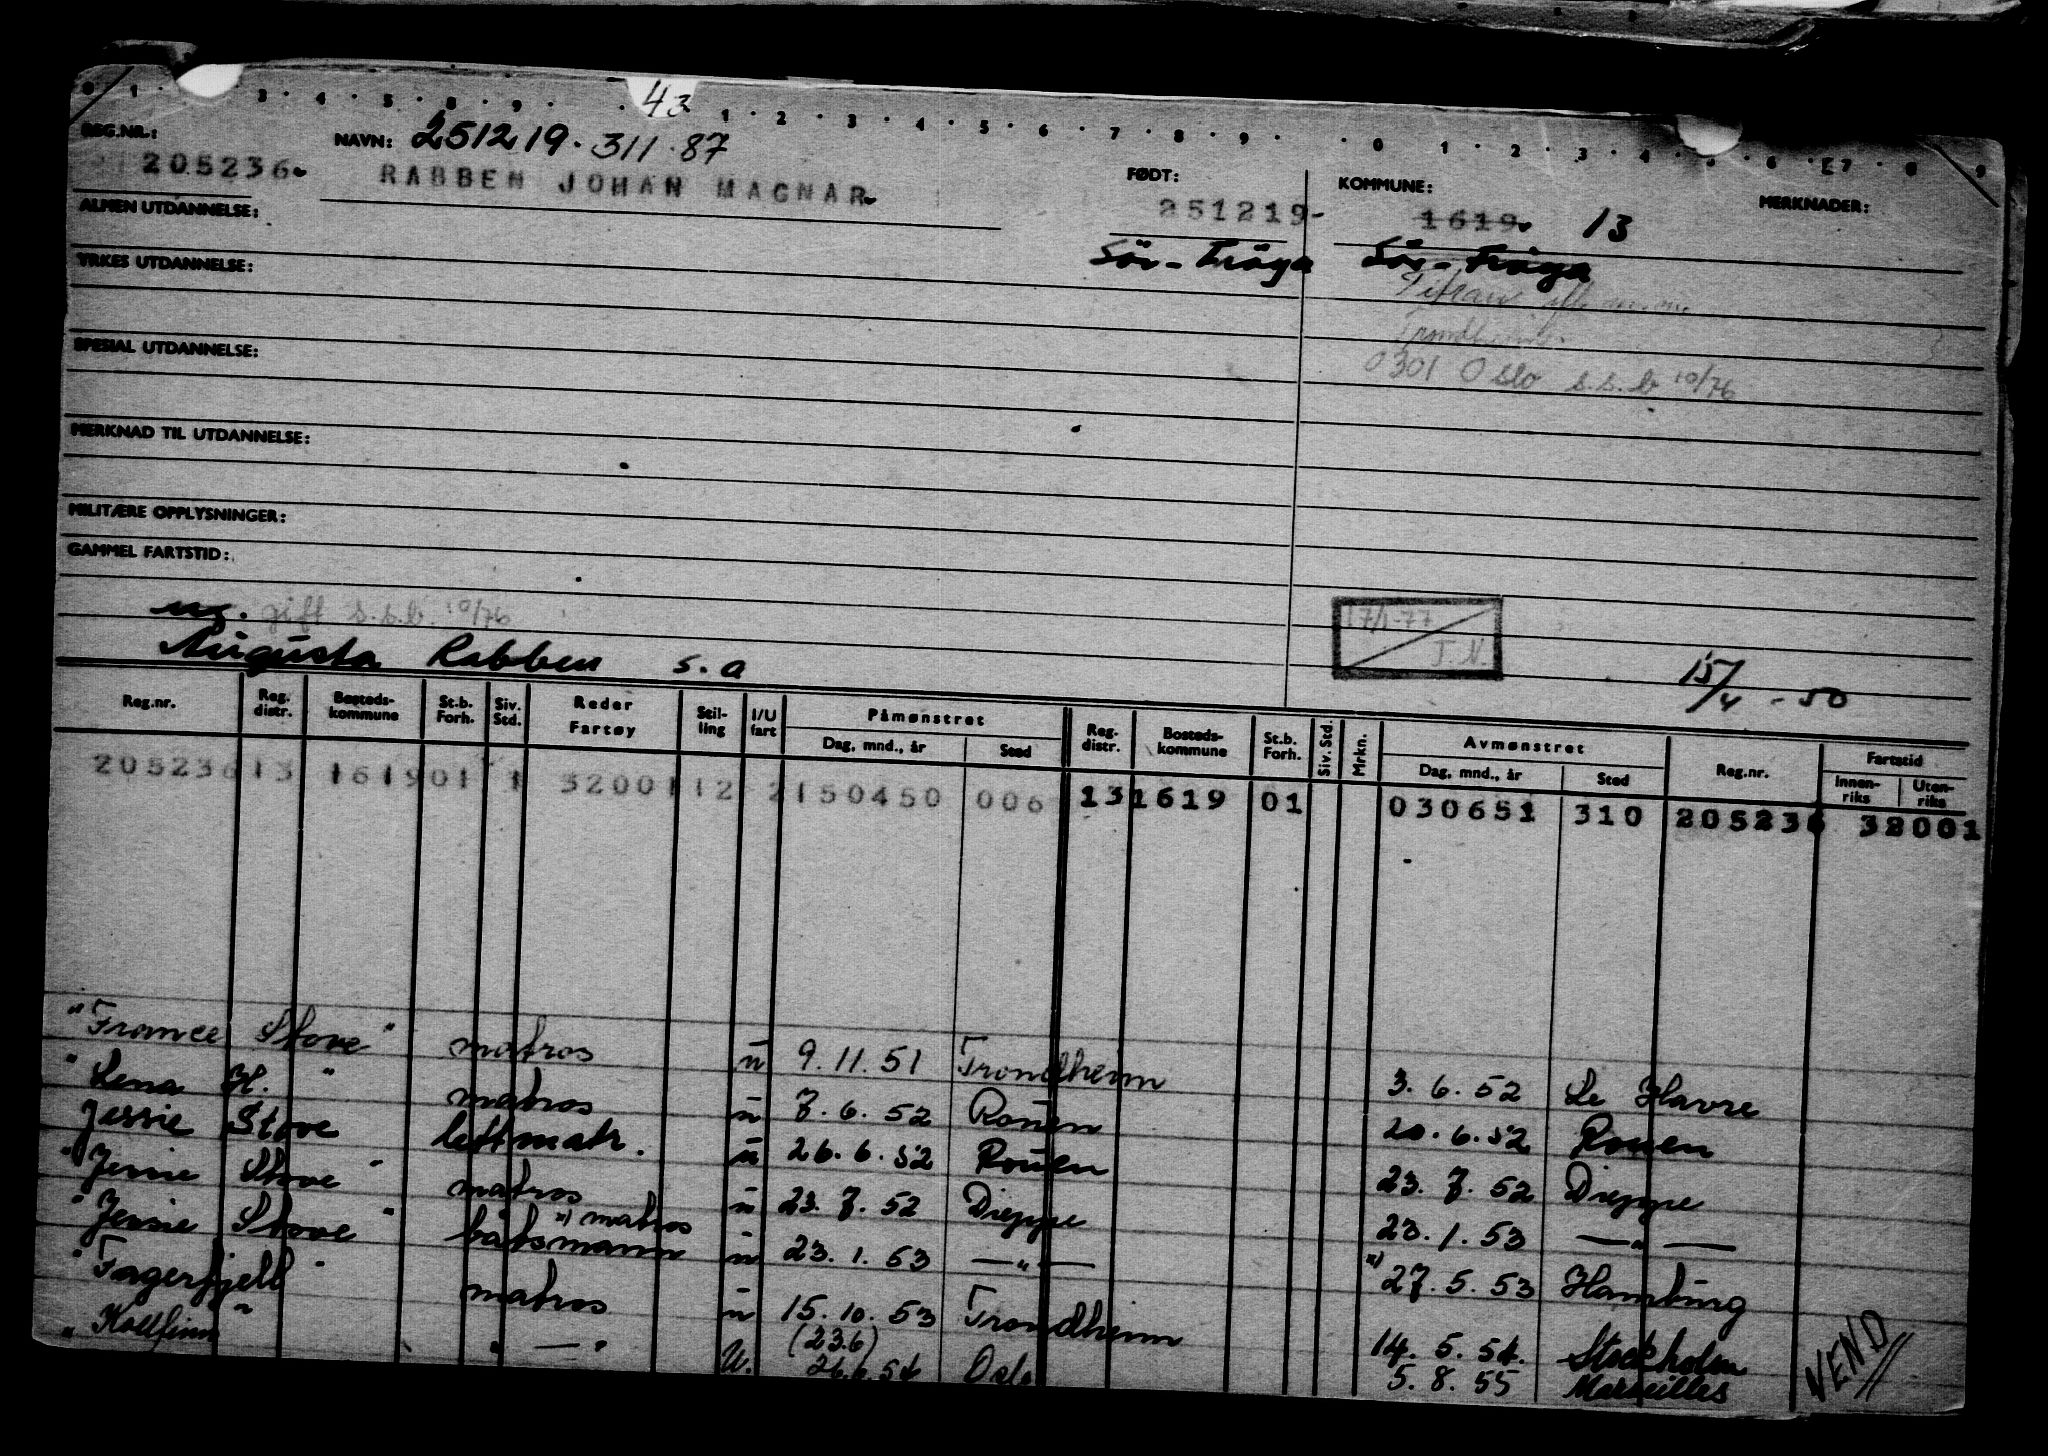 0 1 . 3 . 4 . 5 . 8 . 9 . 43 1 . 2 . 3 . 4 . 5 . 6 . 7 . 8 . 9 . . 0 1 . 2 . 3 . 4 . 5 . 6 . 7 . 8 9
REG.NR.: NAVN: 251219. 311.87
205236. RABBEN JOHAN MAGNAR FØDT: 251219- KOMMUNE: 1619. 13 MERKNADER:
ALMEN UTDANNELSE:
Sör-Fröya Sör-Fröya
YRKES UTDANNELSE:
Titran
Trondheim.
SPESIAL UTDANNELSE:
0301 Oslo s.s.b 10/76
MERKNAD TIL UTDANNELSE:
MILITÆRE OPPLYSNINGER:
GAMMEL FARTSTID:
ug. gift s.s.b. 10/76
17/1-77
T.N.
Augusta Rabben s.a
15/4 - 50
Reg.nr. Reg. distr. Bosteds-kommune St.b. Forh. Siv. Std. Reder Fartøy Stil-ling I/U fart Påmønstret Dag, mnd., år Sted Reg. distr. Bosteds-kommune St.b. Forh. Siv. Std. Mrkn. Avmønstret Dag, mnd., år Sted Reg.nr. Fartstid Innen-riks Uten-riks
205236 13 1619 01 1 32001 12 2 150450 006 13 1619 01 030651 310 205236 32001
"France Stove" matros u 9.11.51 Trondheim 3.6.52 Le Havre
"Lena H. " matros u 7.6.52 Rouen 20.6.52 Rouen
Jessie Stove lettmatr. u 26.6.52 Rouen 23.7.52 Dieppe
"Jessie Stove" matros u 23.7.52 Dieppe 23.1.53 — " —
"Jessie Stove" båtsmann x) matros u 23.1.53 — " — x) 27.5.53 Hamburg
"Fagerfjell" matros u 15.10.53 Trondheim 14.5.54. Stockholm
"Kollfinn" " — " U. (23.6) 26.6.54 Oslo 5.8.55 Marseilles
VEND